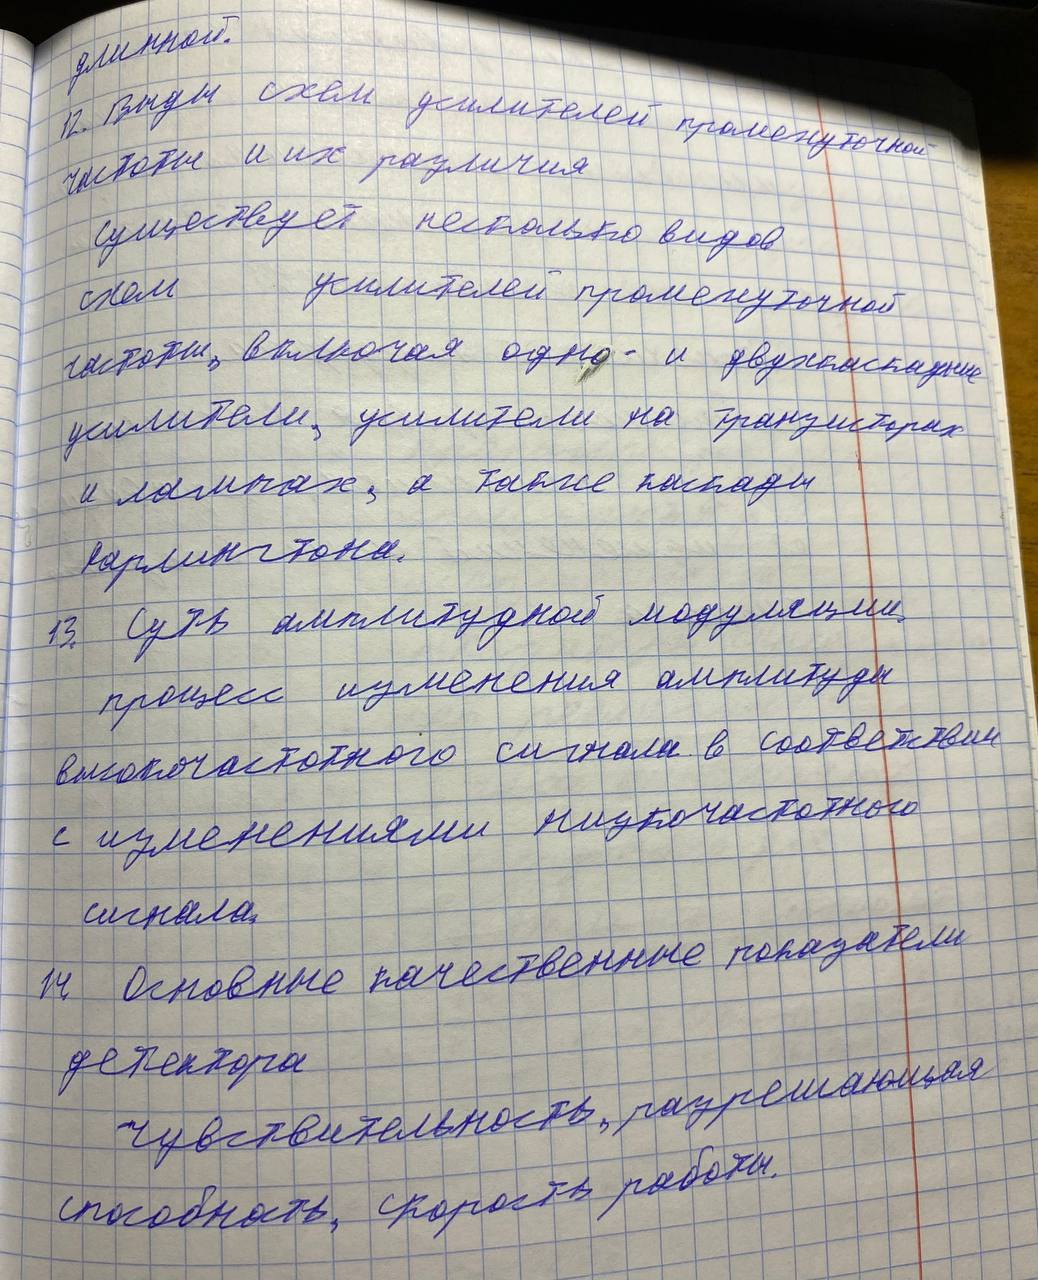 длинной.
12. Виды схем усилителей промежуточной
частоты и их различия
Существует несколько видов
схем усилителей промежуточной
частоты, включая одно- и двухкаскадные
усилители, усилители на транзисторах
и лампах, а также каскады
Дарлингтона.
13. Суть амплитудной модуляции.
процесс изменения амплитуды
высокочастотного сигнала в соответствии
с изменениями низкочастотного
сигнала.
14. Основные качественные показатели
детектора
чувствительность, разрешающая
способность, скорость работы.